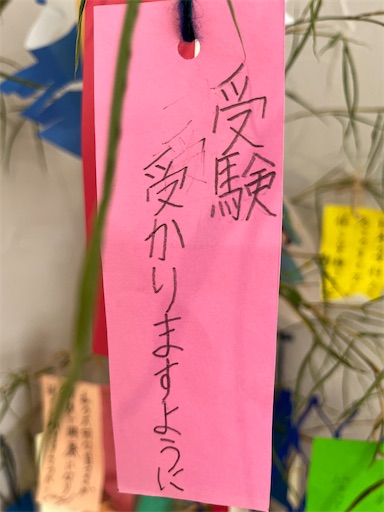 受験
受かりますように